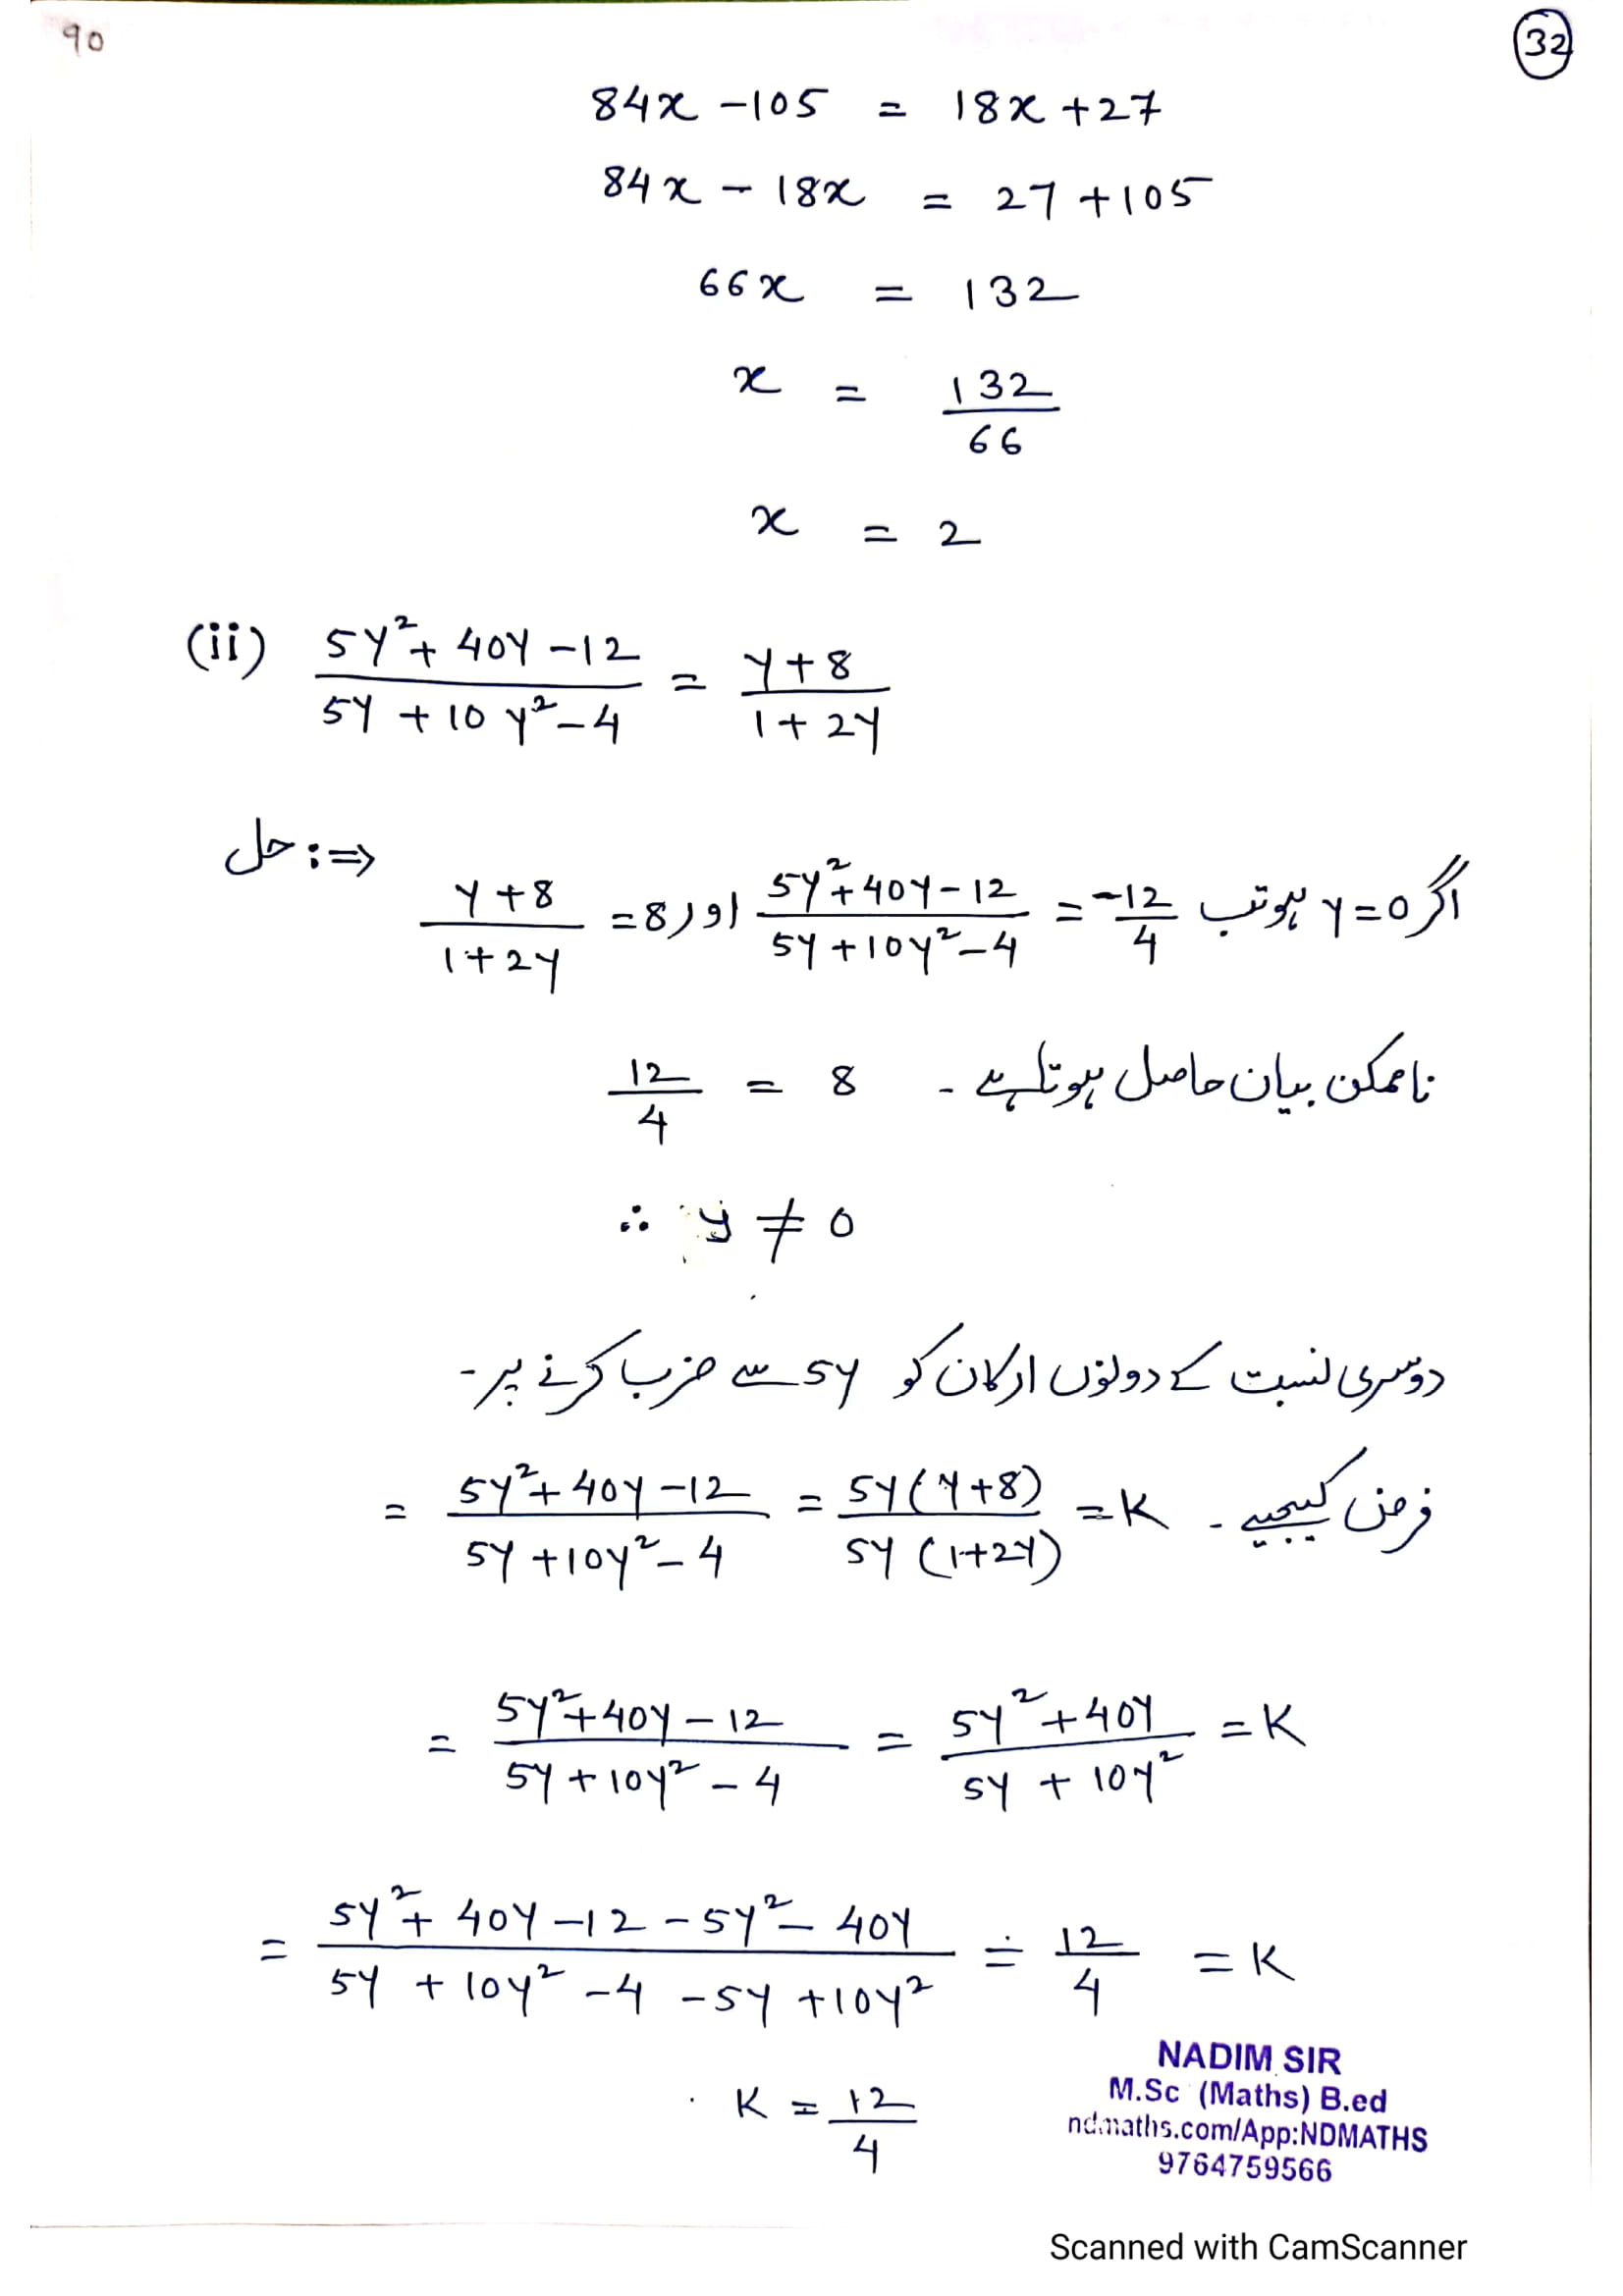 90
32
84x - 105 = 18x + 27
84x - 18x = 27 + 105
66x = 132
x = 132/66
x = 2
(ii) (5y² + 40y - 12)/(5y + 10y² - 4) = (y + 8)/(1 + 2y)
حل :⇒
اگر y = 0 ہو تب (5y² + 40y - 12)/(5y + 10y² - 4) = -12/4 اور (y + 8)/(1 + 2y) = 8
12/4 = 8 ناممکن بیان حاصل ہوتا ہے ۔
∴ y ≠ 0
دوسری نسبت کے دونوں ارکان کو 5y سے ضرب کرنے پر ۔
= (5y² + 40y - 12)/(5y + 10y² - 4) = 5y(y + 8)/5y(1 + 2y) = K فرض کیجیے ۔
= (5y² + 40y - 12)/(5y + 10y² - 4) = (5y² + 40y)/(5y + 10y²) = K
= (5y² + 40y - 12 - 5y² - 40y)/(5y + 10y² - 4 - 5y + 10y²) = 12/4 = K
K = 12/4
NADIM SIR
M.Sc (Maths) B.ed
ndmaths.com/App:NDMATHS
9764759566
Scanned with CamScanner